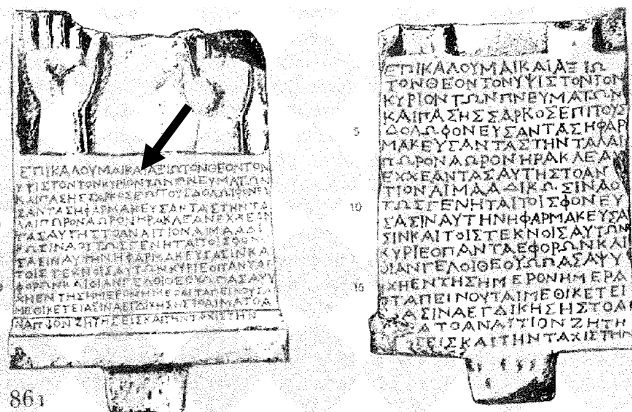 ΕΠΙΚΑΛΟΥΜΑΙΚΑΙΑΞΙΩΤΟΝΘΕΟΝΤΟΝ
ΥΨΙΣΤΟΝΤΟΝΚΥΡΙΟΝΤΩΝΠΝΕΥΜΑΤΩΝ
ΚΑΙΠΑΣΗΣΣΑΡΚΟΣΕΠΙΤΟΥΣΔΟΛΩΦΟΝΕΥ
ΣΑΝΤΑΣΗΦΑΡΜΑΚΕΥΣΑΝΤΑΣΤΗΝΤΑ
ΛΑΙΠΩΡΟΝΑΩΡΟΝΗΡΑΚΛΕΑΝΕΧΧΕΑΝ
ΤΑΣΑΥΤΗΣΤΟΑΝΑΙΤΙΟΝΑΙΜΑΑΔΙ
ΚΩΣΙΝΑΟΥΤΩΣΓΕΝΗΤΑΙΤΟΙΣΦΟΝΕΥ
ΣΑΣΙΝΑΥΤΗΝΗΦΑΡΜΑΚΕΥΣΑΣΙΝΚΑΙ
ΤΟΙΣΤΕΚΝΟΙΣΑΥΤΩΝΚΥΡΙΕΟΠΑΝΤΑΕ
ΦΟΡΩΝΚΑΙΟΙΑΝΓΕΛΟΙΘΕΟΥΩΠΑΣΑΨΥ
ΧΗΕΝΤΗΣΗΜΕΡΟΝΗΜΕΡΑΤΑΠΕΙΝΟΥΤΑΙ
ΜΕΘΙΚΕΤΕΙΑΣΙΝΑΕΓΔΙΚΗΣΗΣΤΟΑΙΜΑΤΟΑ
ΝΑΙΤΙΟΝΖΗΤΗΣΕΙΣΚΑΙΤΗΝΤΑΧΙΣΤΗΝ
861
ΕΠΙΚΑΛΟΥΜΑΙΚΑΙΑΞΙΩ
ΤΟΝΘΕΟΝΤΟΝΥΨΙΣΤΟΝΤΟΝ
ΚΥΡΙΟΝΤΩΝΠΝΕΥΜΑΤΩΝ
ΚΑΙΠΑΣΗΣΣΑΡΚΟΣΕΠΙΤΟΥΣ
5 ΔΟΛΩΦΟΝΕΥΣΑΝΤΑΣΗΦΑΡ
ΜΑΚΕΥΣΑΝΤΑΣΤΗΝΤΑΛΑΙ
ΠΩΡΟΝΑΩΡΟΝΗΡΑΚΛΕΑΝ
ΕΧΧΕΑΝΤΑΣΑΥΤΗΣΤΟΑΝ
ΤΙΟΝΑΙΜΑΑΔΙΚΩΣΙΝΑΟ
10 ΤΩΣΓΕΝΗΤΑΙΤΟΙΣΦΟΝΕΥ
ΣΑΣΙΝΑΥΤΗΝΗΦΑΡΜΑΚΕΥΣΑ
ΣΙΝΚΑΙΤΟΙΣΤΕΚΝΟΙΣΑΥΤΩΝ
ΚΥΡΙΕΟΠΑΝΤΑΕΦΟΡΩΝΚΑΙ
ΟΙΑΝΓΕΛΟΙΘΕΟΥΩΠΑΣΑΨΥ
15 ΧΗΕΝΤΗΣΗΜΕΡΟΝΗΜΕΡΑ
ΤΑΠΕΙΝΟΥΤΑΙΜΕΘΙΚΕΤΕΙ
ΑΣΙΝΑΕΓΔΙΚΗΣΗΣΤΟΑΙ
ΜΑΤΟΑΝΑΙΤΙΟΝΖΗΤΗ
ΣΕΙΣΚΑΙΤΗΝΤΑΧΙΣΤΗΝ